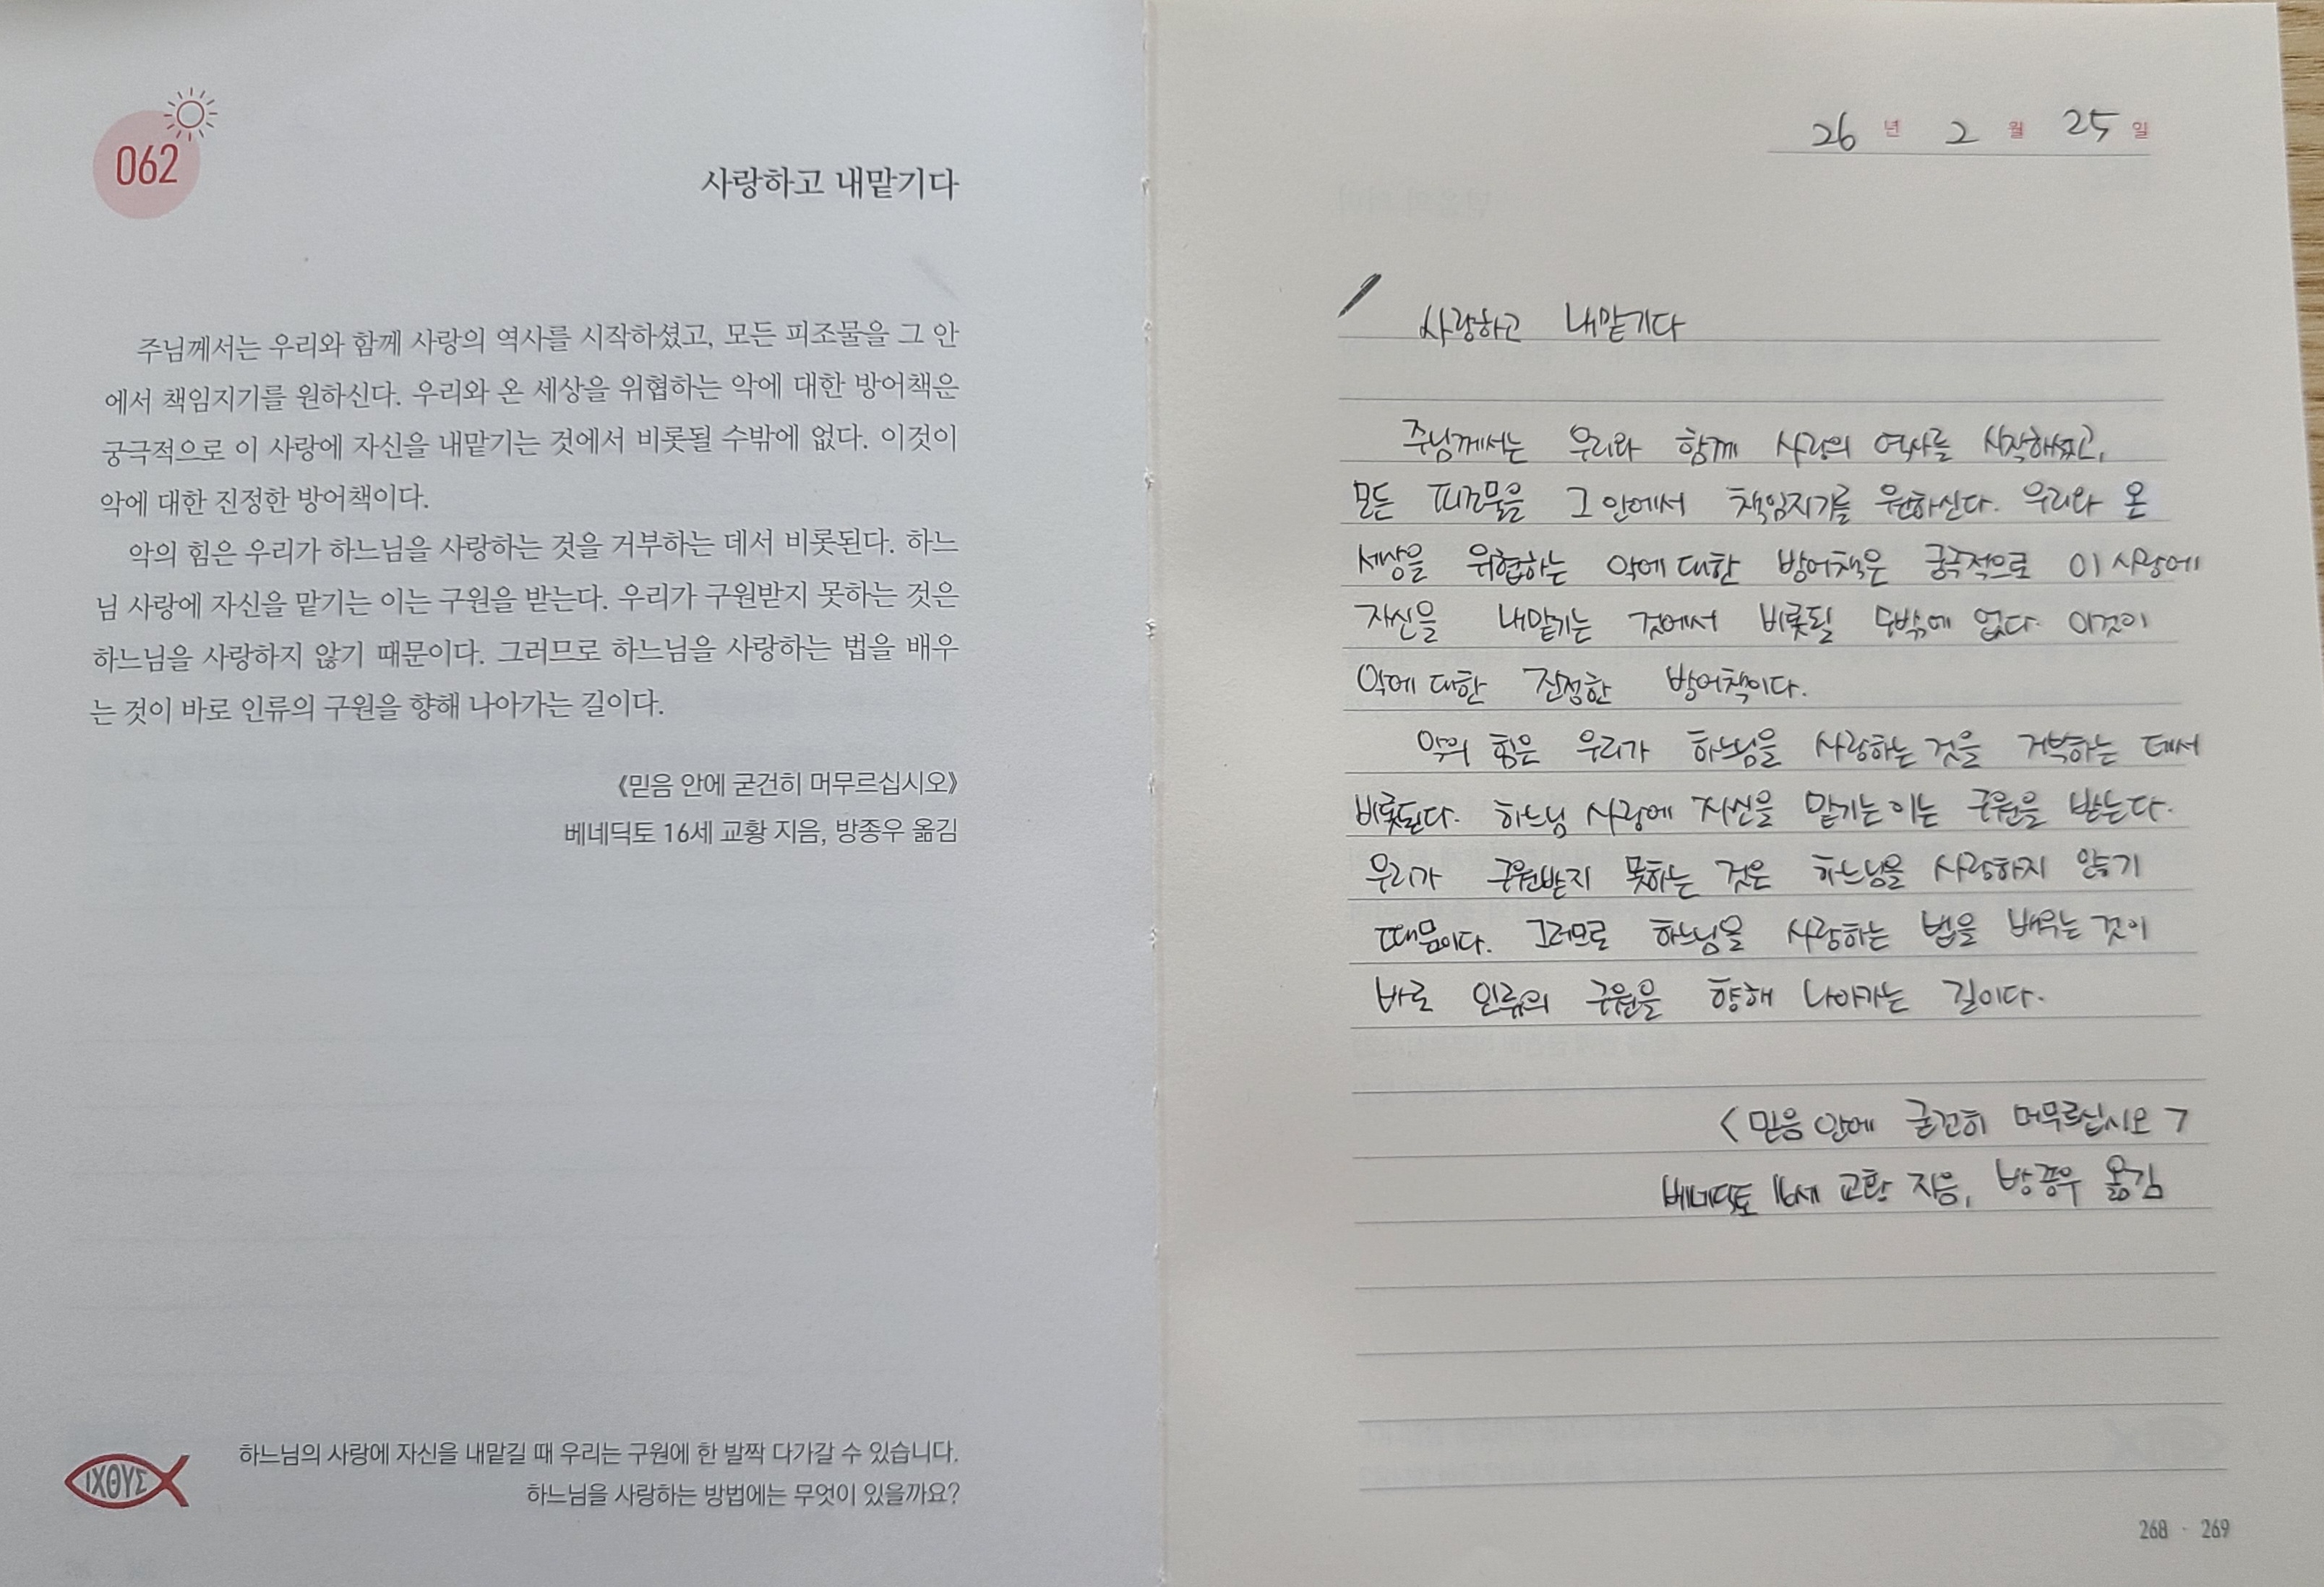 062
사랑하고 내맡기다
주님께서는 우리와 함께 사랑의 역사를 시작하셨고, 모든 피조물을 그 안
에서 책임지기를 원하신다. 우리와 온 세상을 위협하는 악에 대한 방어책은
궁극적으로 이 사랑에 자신을 내맡기는 것에서 비롯될 수밖에 없다. 이것이
악에 대한 진정한 방어책이다.
악의 힘은 우리가 하느님을 사랑하는 것을 거부하는 데서 비롯된다. 하느
님 사랑에 자신을 맡기는 이는 구원을 받는다. 우리가 구원받지 못하는 것은
하느님을 사랑하지 않기 때문이다. 그러므로 하느님을 사랑하는 법을 배우
는 것이 바로 인류의 구원을 향해 나아가는 길이다.
《믿음 안에 굳건히 머무르십시오》
베네딕토 16세 교황 지음, 방종우 옮김
ΙΧΘΥΣ
하느님의 사랑에 자신을 내맡길 때 우리는 구원에 한 발짝 다가갈 수 있습니다.
하느님을 사랑하는 방법에는 무엇이 있을까요?
26 년 2 월 25 일
사랑하고 내맡기다
주님께서는 우리와 함께 사랑의 역사를 시작하셨고,
모든 피조물을 그 안에서 책임지기를 원하신다. 우리와 온
세상을 위협하는 악에 대한 방어책은 궁극적으로 이 사랑에
자신을 내맡기는 것에서 비롯될 수밖에 없다. 이것이
악에 대한 진정한 방어책이다.
악의 힘은 우리가 하느님을 사랑하는 것을 거부하는 데서
비롯된다. 하느님 사랑에 자신을 맡기는 이는 구원을 받는다.
우리가 구원받지 못하는 것은 하느님을 사랑하지 않기
때문이다. 그러므로 하느님을 사랑하는 법을 배우는 것이
바로 인류의 구원을 향해 나아가는 길이다.
<믿음 안에 굳건히 머무르십시오>
베네딕토 16세 교황 지음, 방종우 옮김
268 · 269